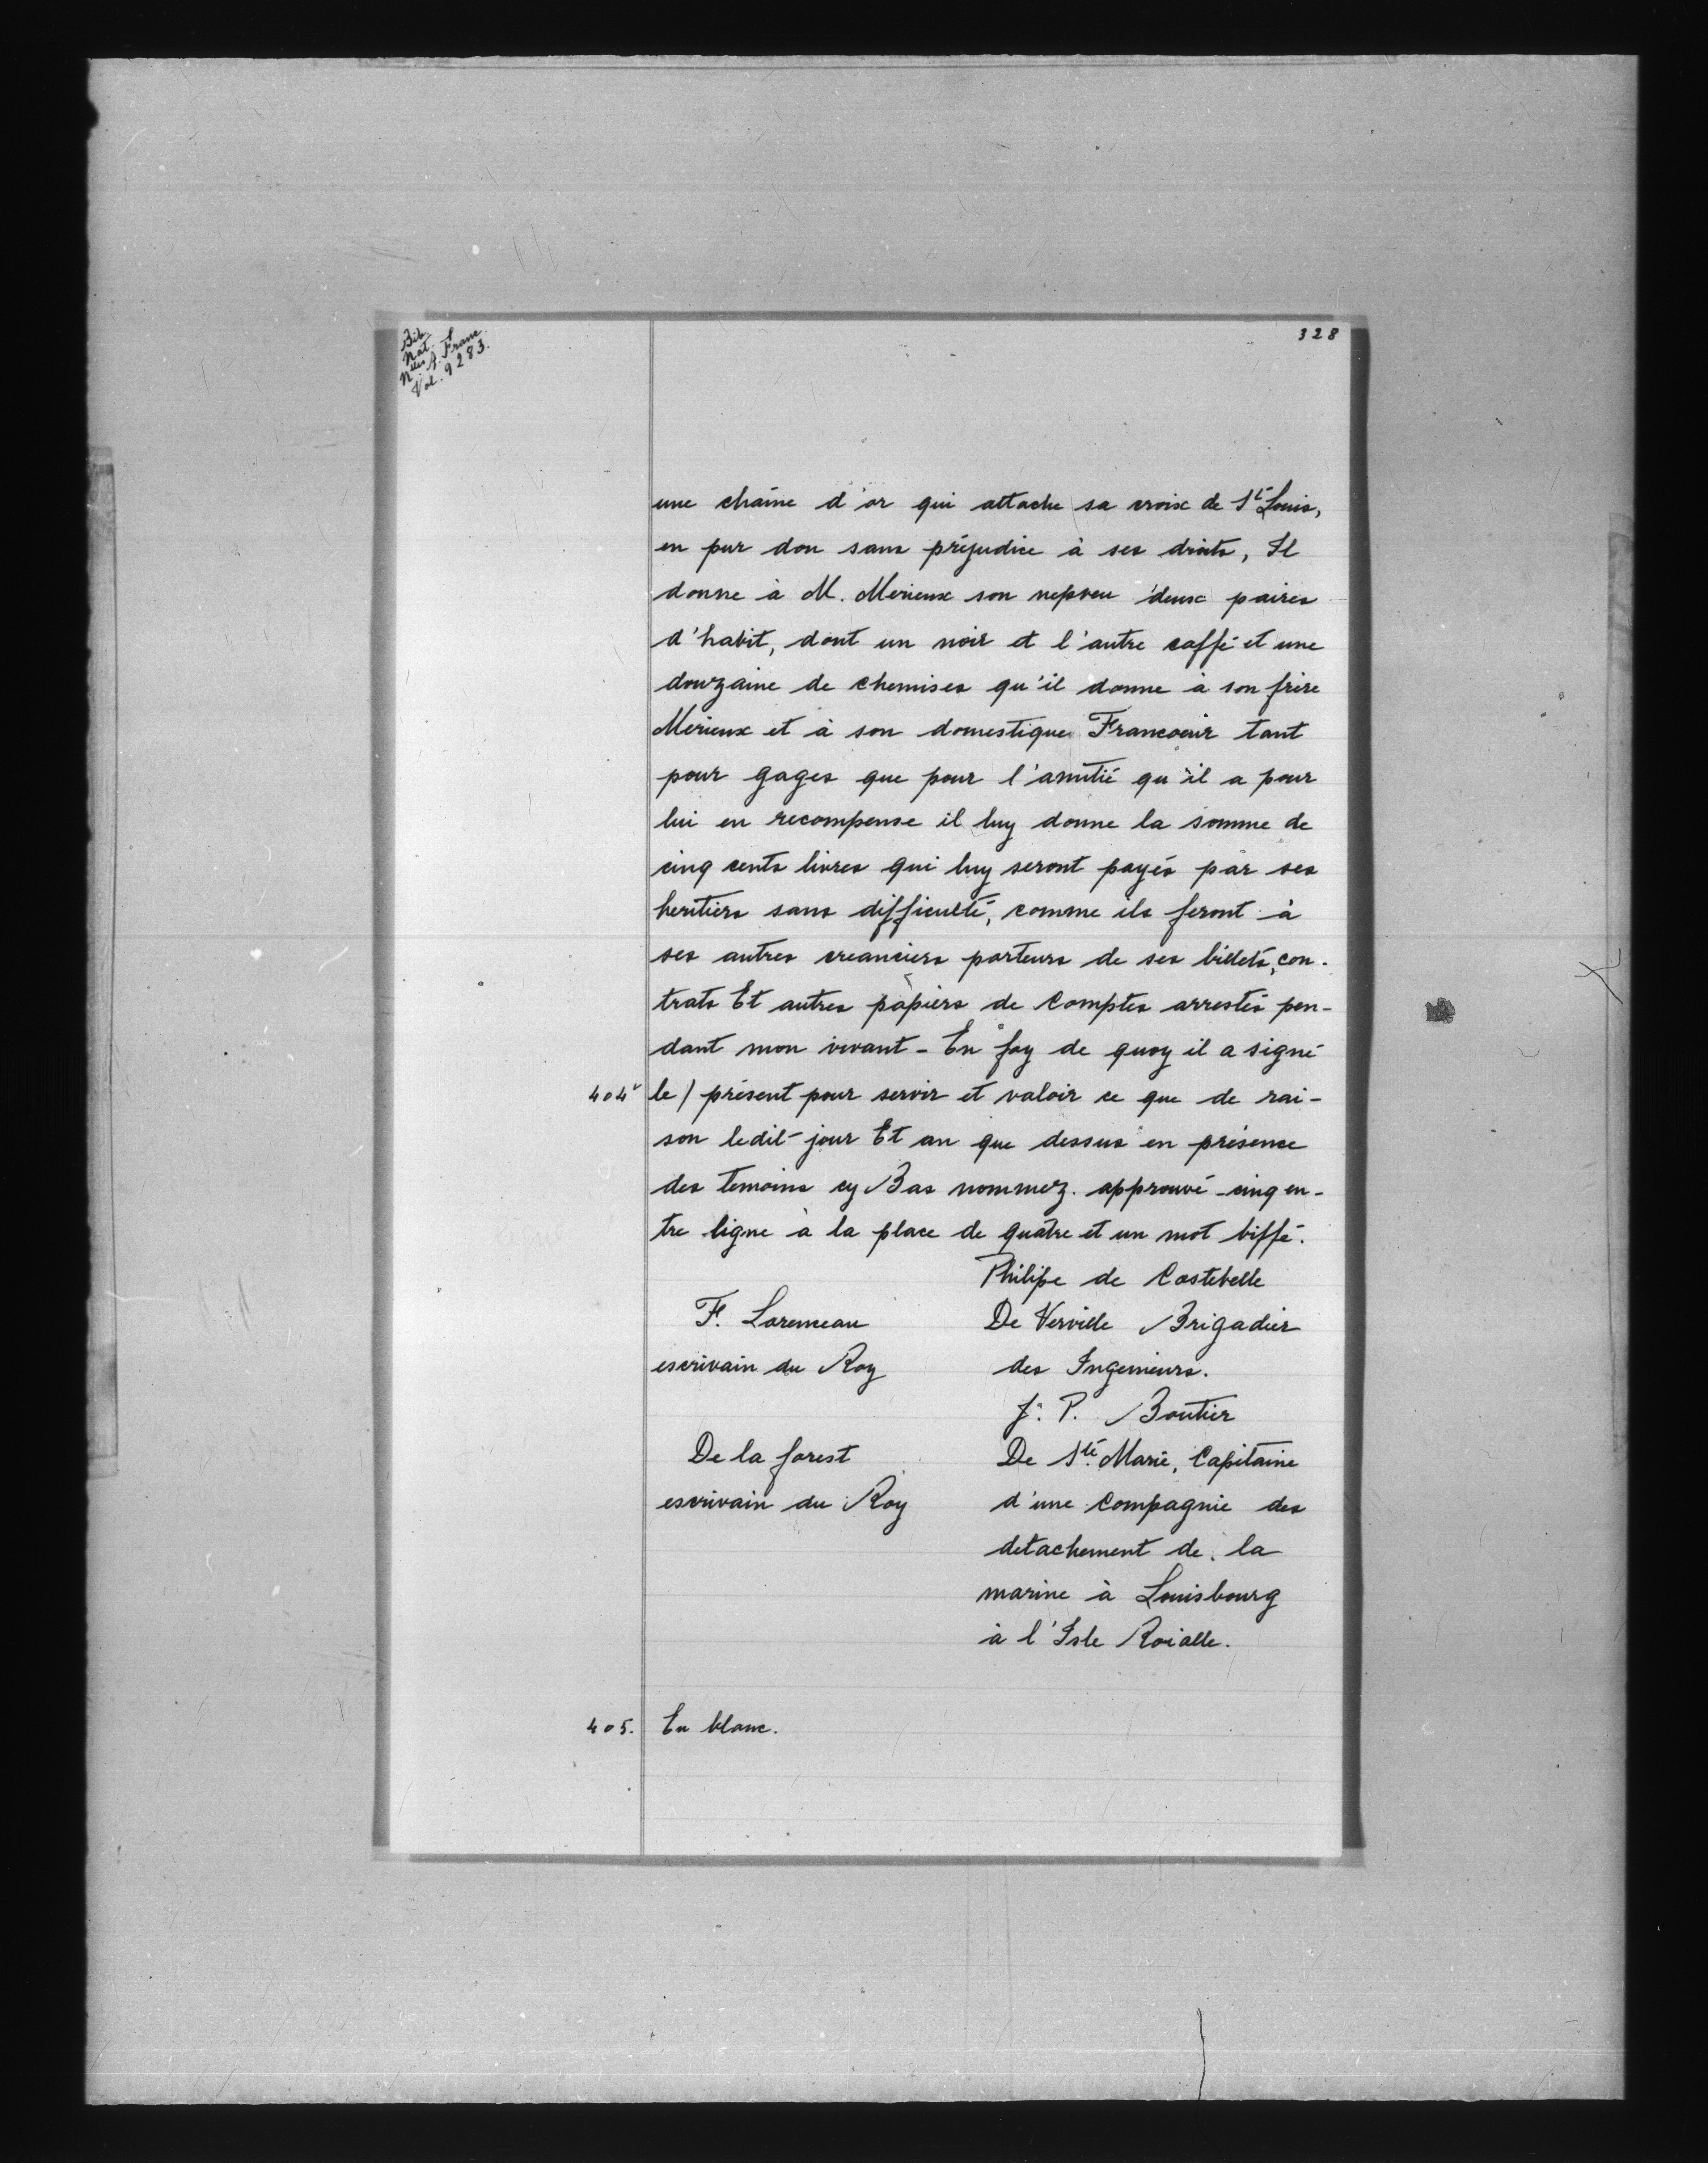 Bib.
Nat.
Nlles A. Franc.
Vol. 9283.
328
une chaîne d'or qui attache sa croix de St Louis,
en pur don sans préjudice à ses droits, Il
donne à M. Merieux son nepveu deux paires
d'habit, dont un noir et l'autre caffé et une
douzaine de chemises qu'il donne à son frère
Merieux et à son domestique Francoeur tant
pour gages que pour l'amitié qu'il a pour
lui en recompense il luy donne la somme de
cinq cents livres qui luy seront payés par ses
heritiers sans difficulté, comme ils feront à
ses autres creanciers porteurs de ses billets, con-
trats Et autres papiers de Comptes arrestés pen-
dant mon vivant - En foy de quoy il a signé
404v le / présent pour servir et valoir ce que de rai-
son ledit jour Et an que dessus en présence
des temoins cy Bas nommez. approuvé - cinq en-
tre ligne à la place de quatre et un mot biffé.
Philipe de Costebelle
F. Loremeau De Verville Brigadier
escrivain du Roy des Ingenieurs.
J. P. Boutier
De la forest De Ste Marie, Capitaine
escrivain du Roy d'une Compagnie des
detachement de la
marine à Louisbourg
à l'Isle Roialle.
405. En blanc.